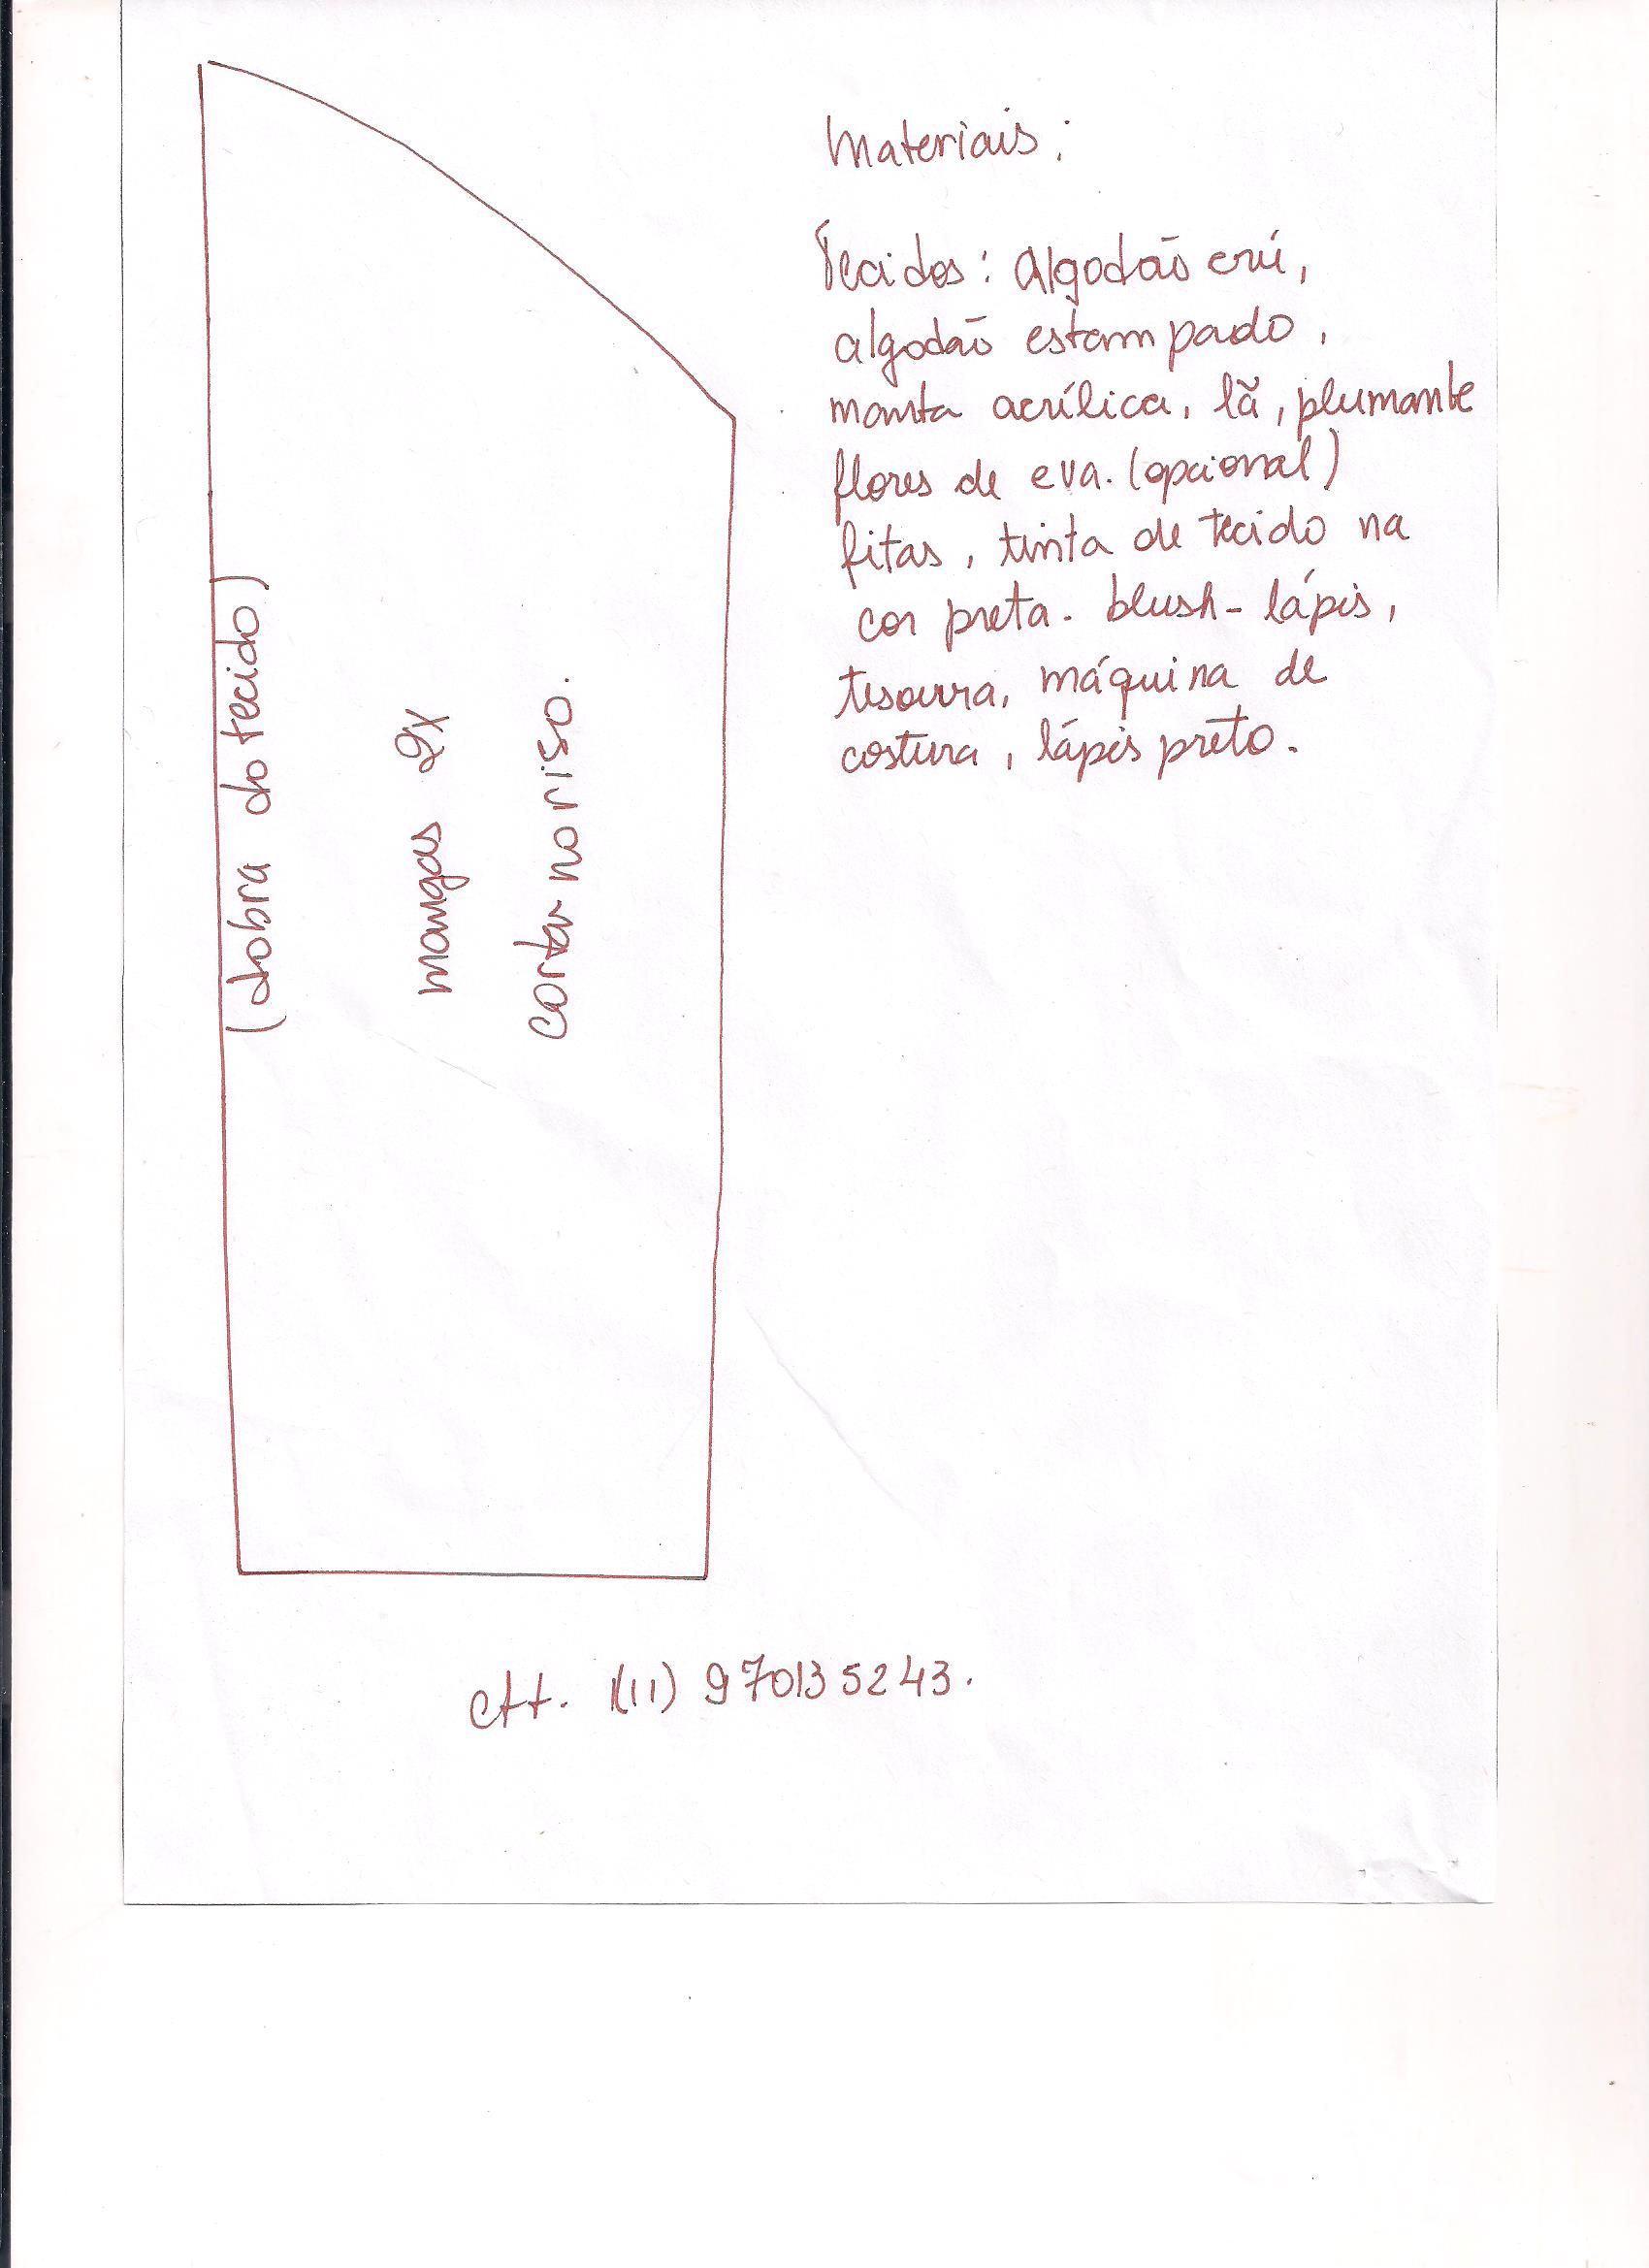 materiais:
Tecidos: Algodão crú,
algodão estampado,
manta acrílica, lã, plumante
flores de eva. (opcional)
fitas, tinta de tecido na
cor preta. blush - lápis,
tesoura, máquina de
costura, lápis preto.
(dobra do tecido)
mangas 2x
cortar no riso.
ctt. (11) 970135243.